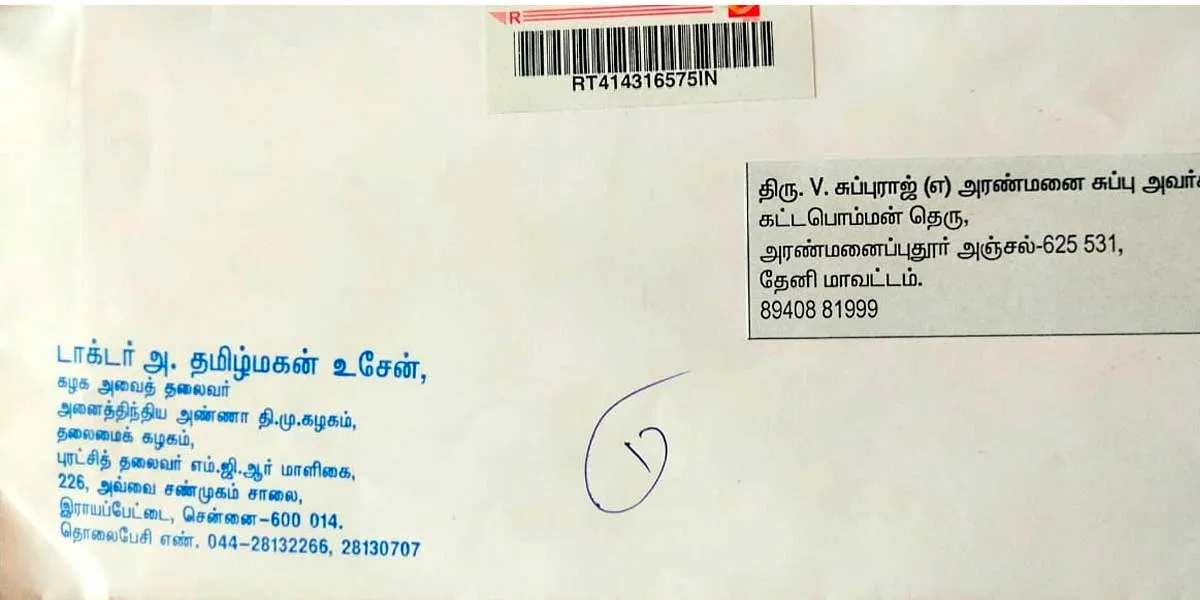 R
RT414316575IN
திரு. V. சுப்புராஜ் (எ) அரண்மனை சுப்பு
கட்டபொம்மன் தெரு,
அரண்மனைப்புதூர் அஞ்சல்-625 531,
தேனி மாவட்டம்.
89408 81999
டாக்டர் அ. தமிழ்மகன் உசேன்,
கழக அவைத் தலைவர்
அனைத்திந்திய அண்ணா தி.மு.கழகம்,
தலைமைக் கழகம்,
புரட்சித் தலைவர் எம்.ஜி.ஆர் மாளிகை,
226, அவ்வை சண்முகம் சாலை,
இராயப்பேட்டை, சென்னை-600 014.
தொலைபேசி எண். 044-28132266, 28130707